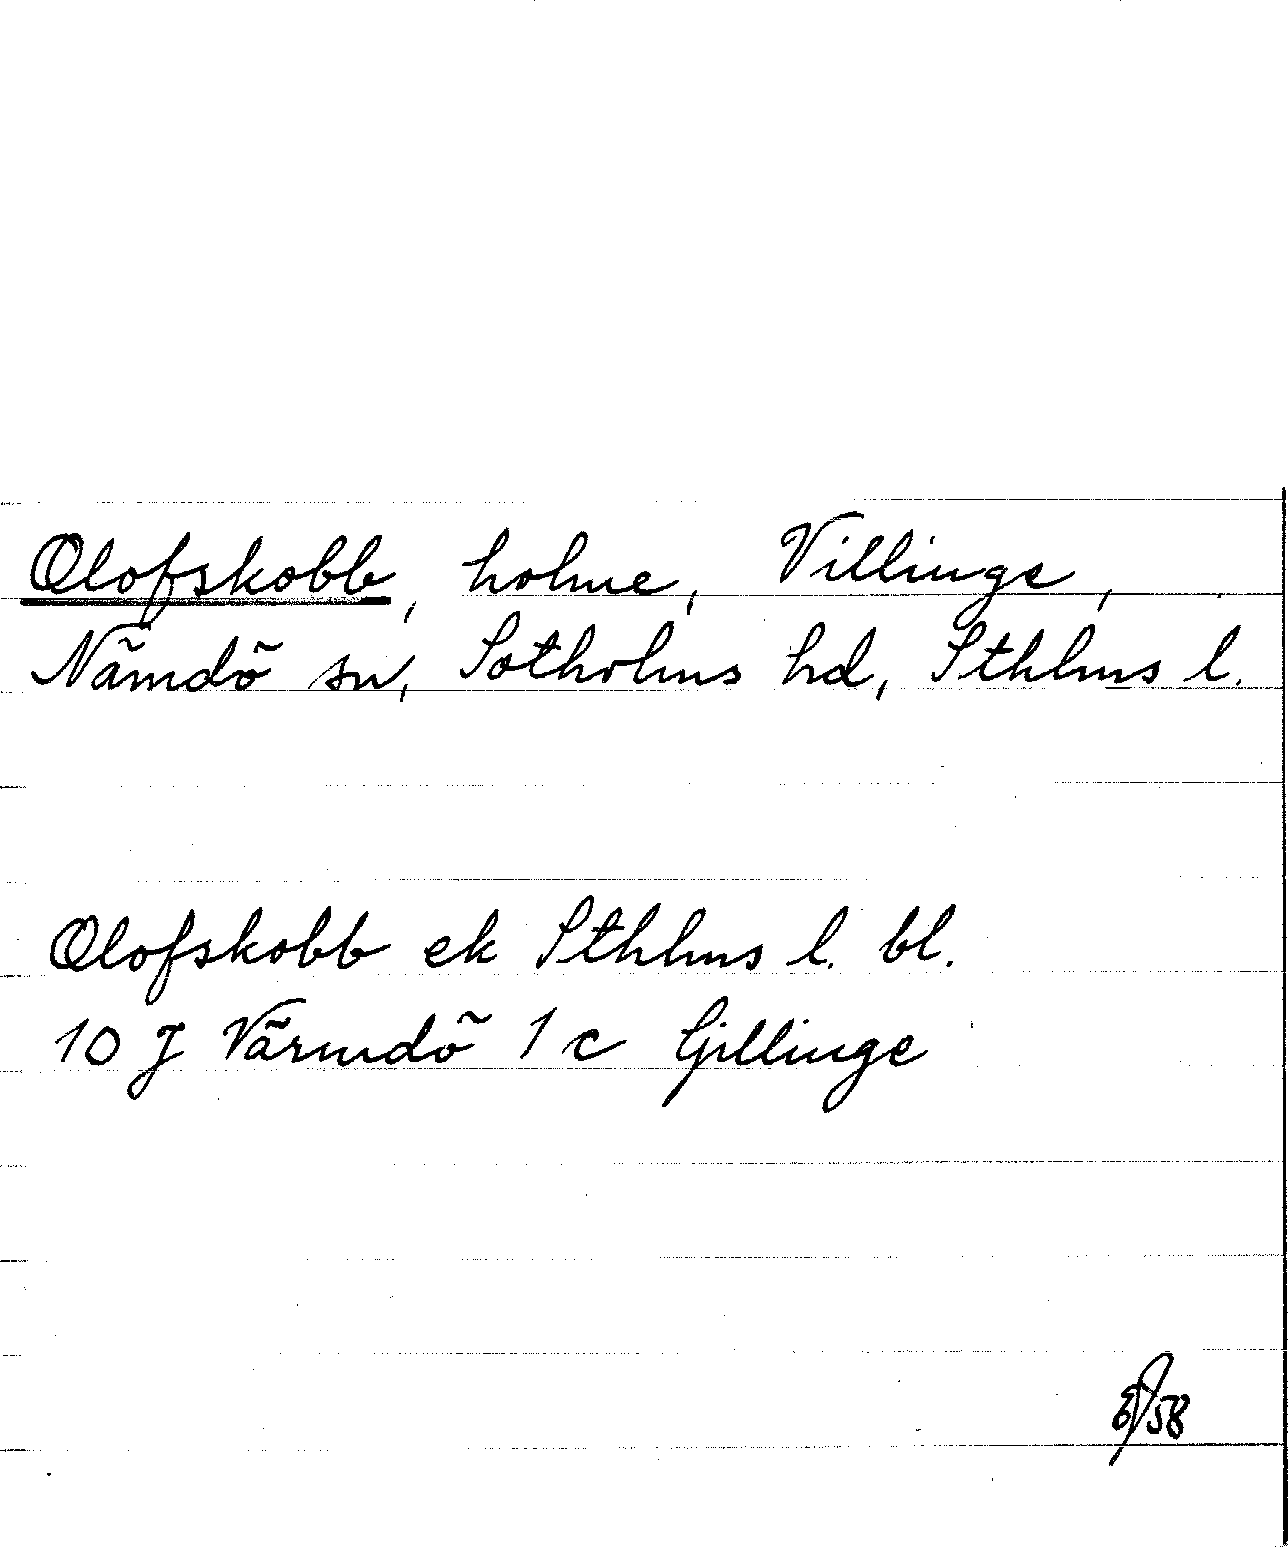 Olofskobb, holme, Villinge,
Nämdö sn, Sotholms hd, Sthlms l.
Olofskobb ek Sthlms l. bl.
10 J Värmdö 1 c Gillinge
/58